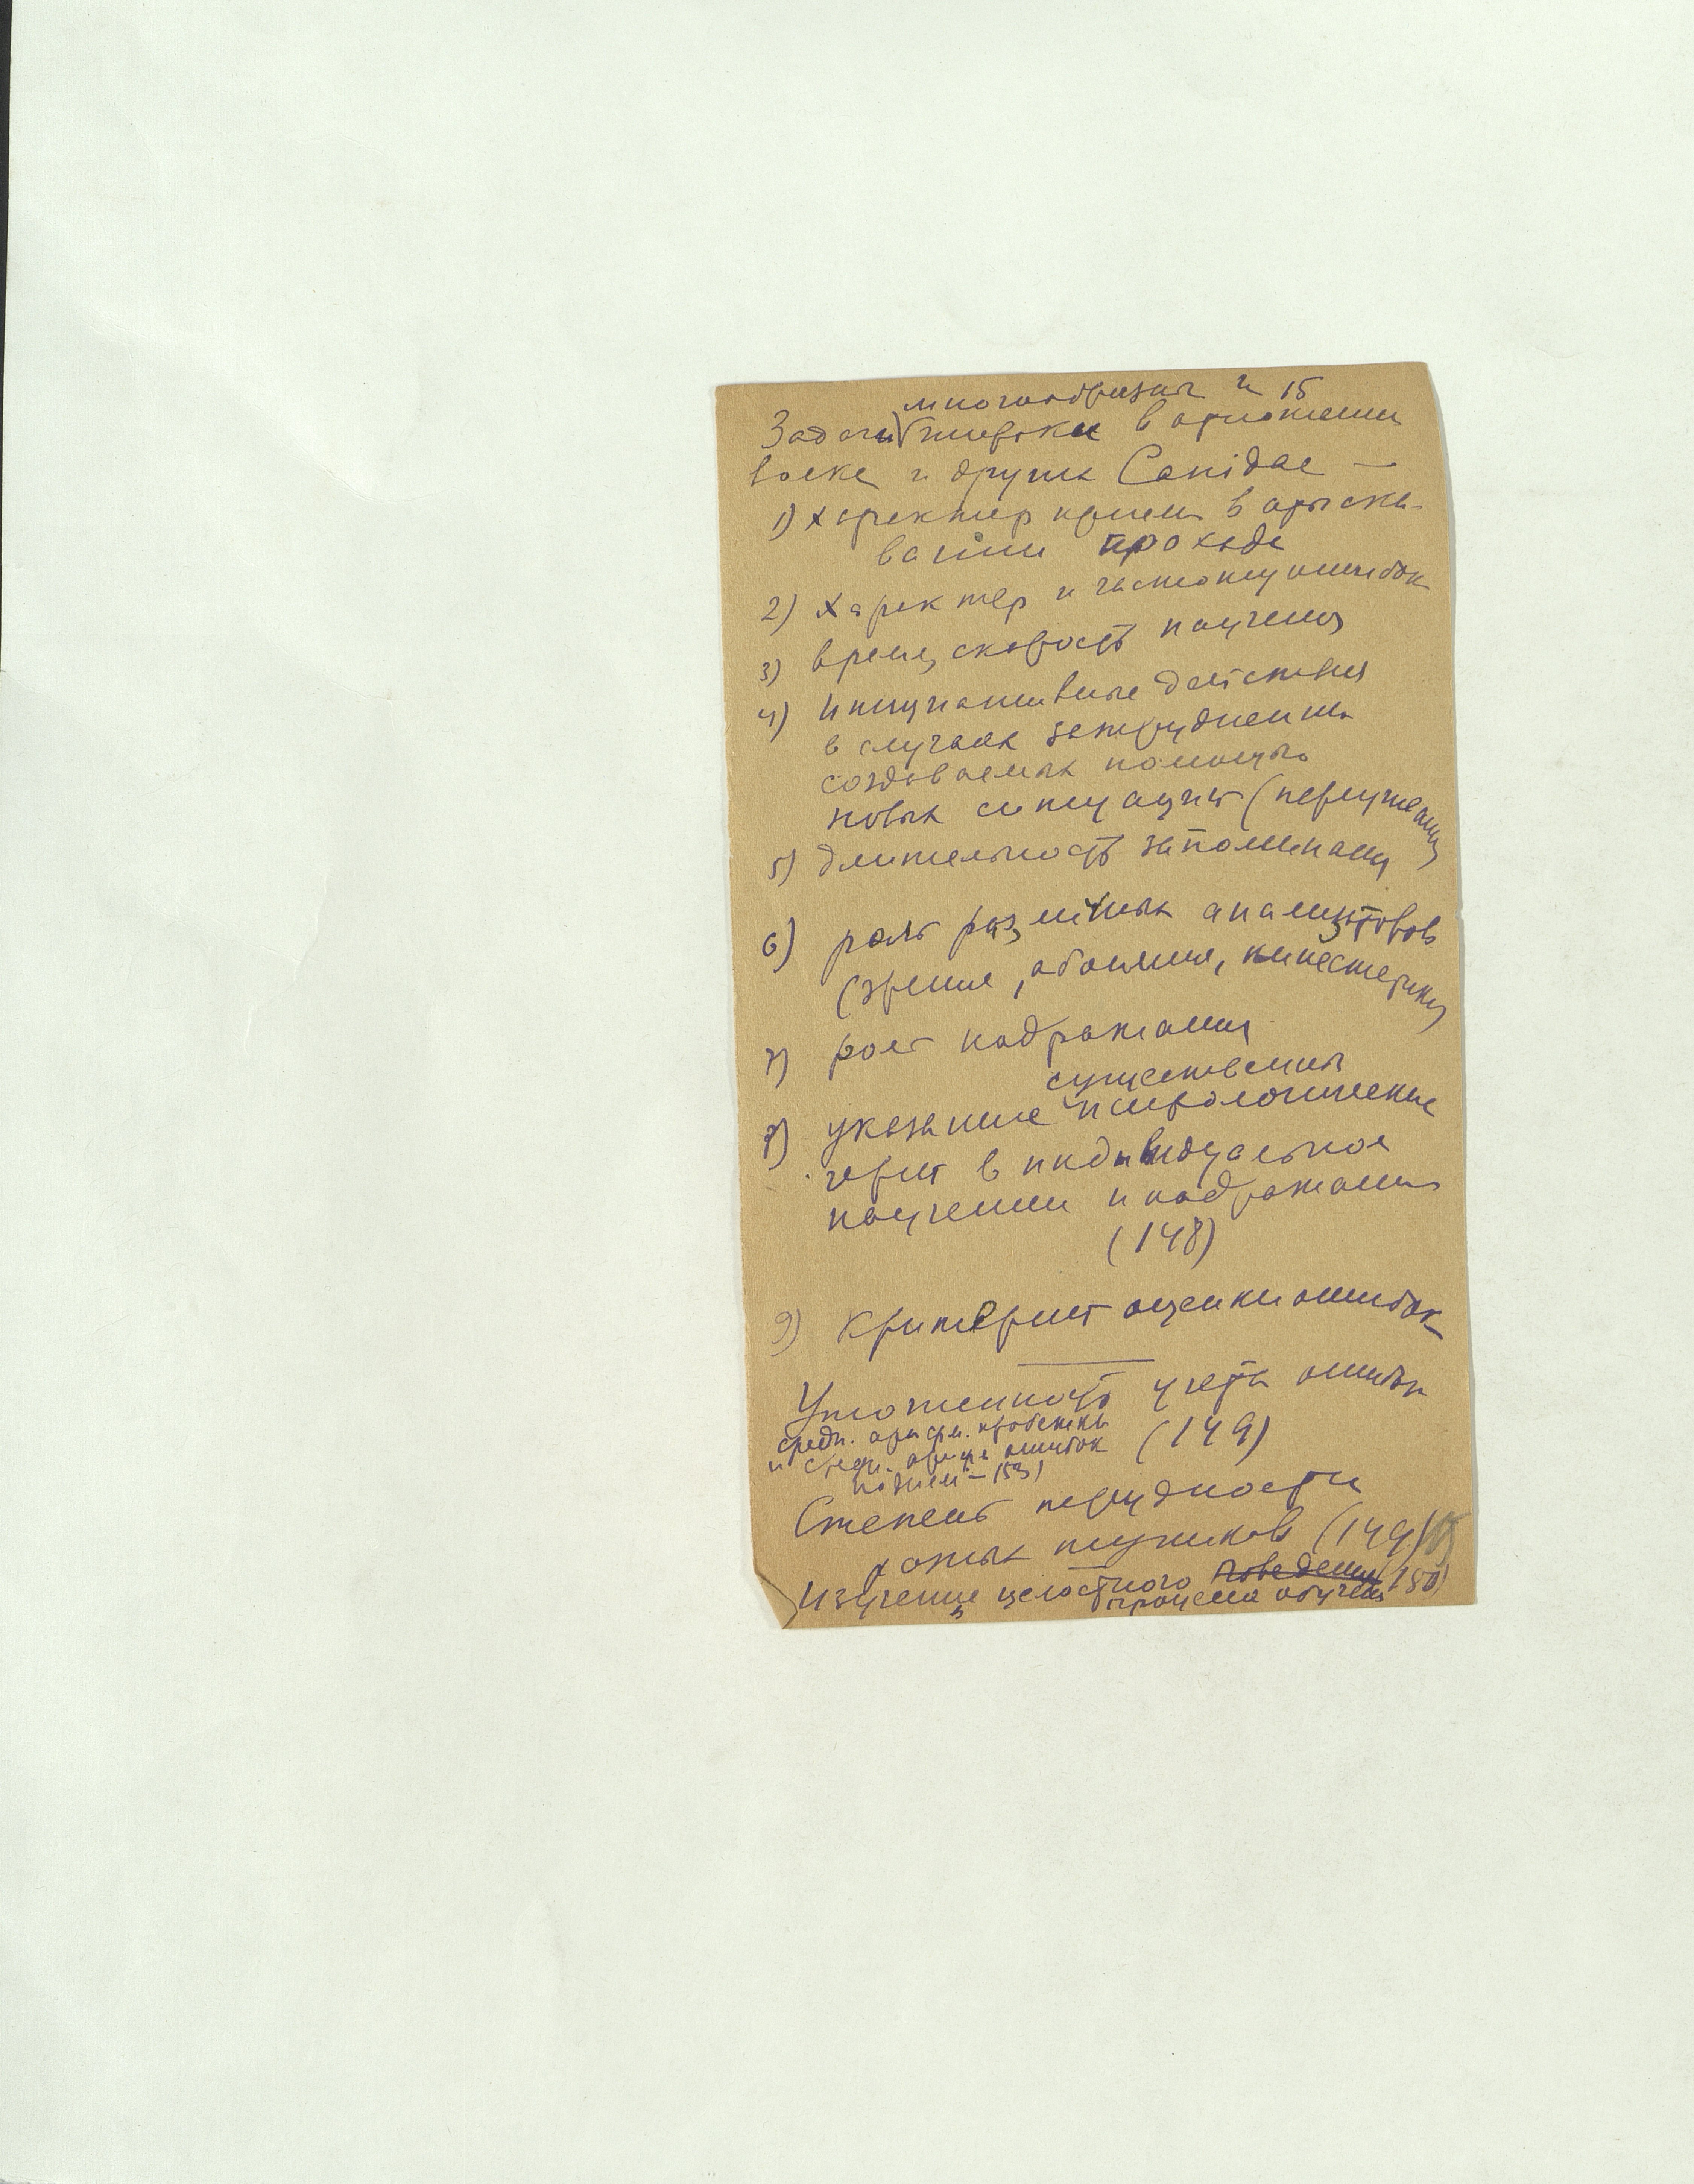 многообразны и 15
Задачи широки в отношении
волка и других Canidae —
1) характер приема в отыски-
вании прохода
2) характер и частоту ошибок
3) время, скорость научения
4) инициативные действия
в случаях затруднения
создаваемых помощью
новых ситуаций (переучивания
5) длительность запоминания
6) роль различных анализаторов
(зрение, обоняние, кинестетики
7) роль подражания
существенные
8) указание психологические
черт в индивидуальном
научении и подражании
(148)
9) критерий оценки ошибок
учета ошибок
средн. арифм. пробежки (149)
и средн. арифм ошибок
153)
Степень трудности
тупиков (149)
Изучение целостного поведения (150)
процесса обучения